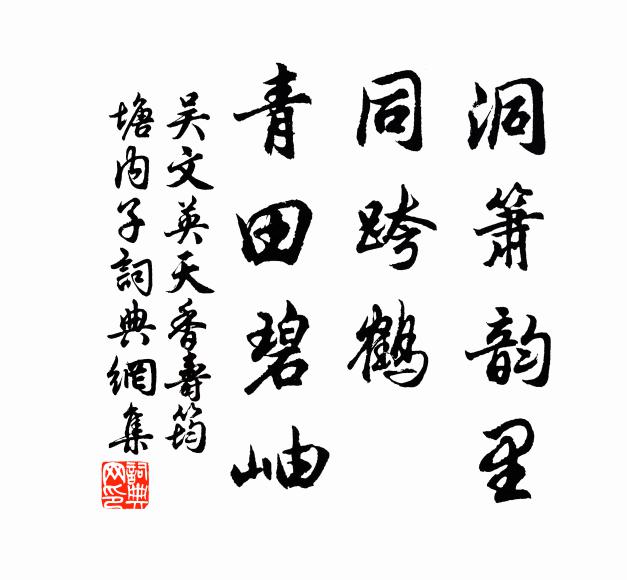 洞箫韵里
同跨鹤
青田碧岫
吴文英天香壽筠
塘内子詞典網集
詞典网印